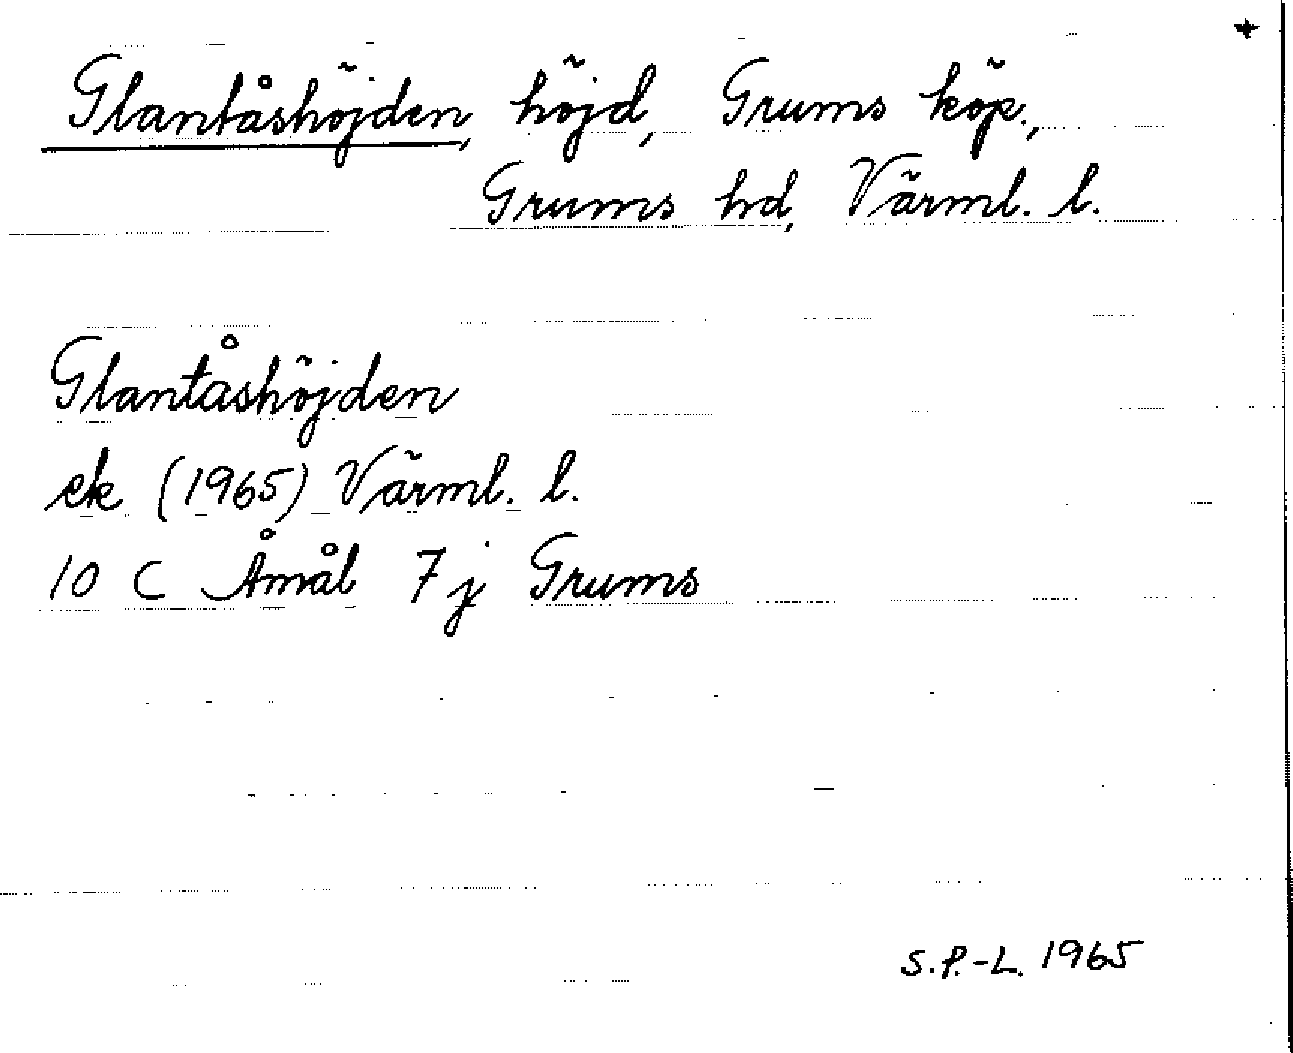 Glantåshöjden, höjd, Grums köp.,
Grums hd, Värml. l.
Glantåshöjden
ek (1965) Värml. l.
10 C Åmål 7 j Grums
S.P.-L. 1965